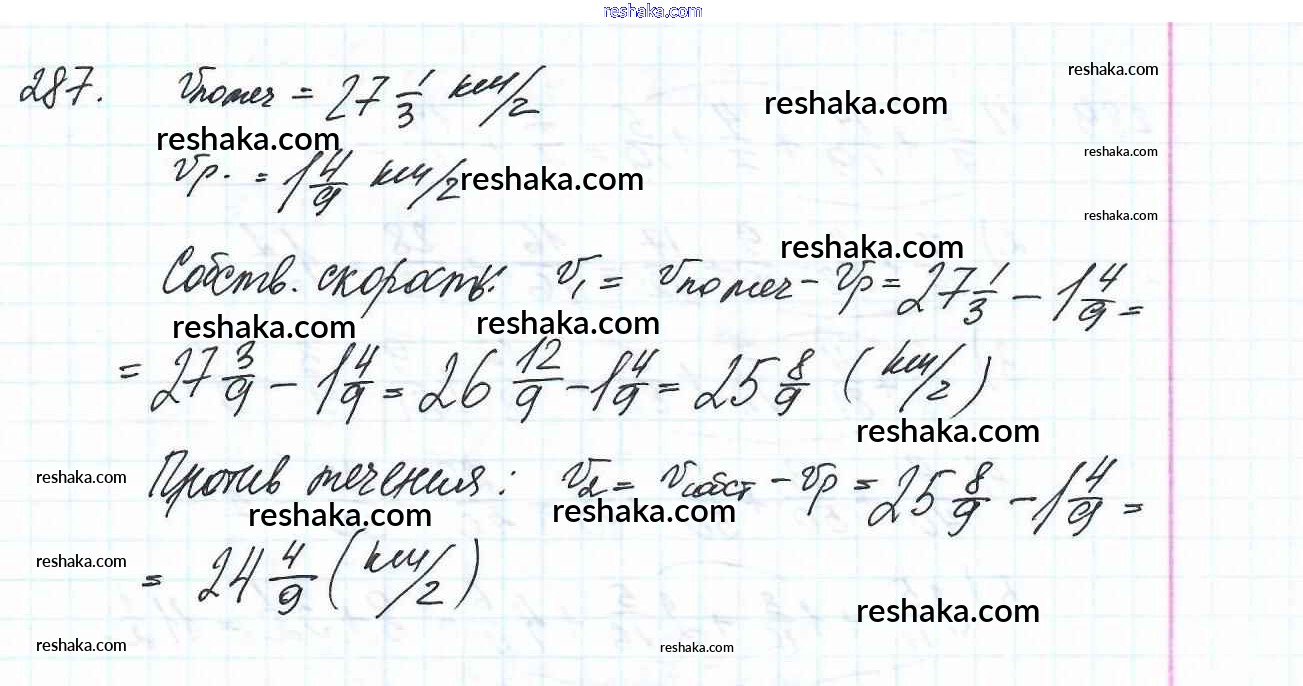 reshaka.com
287. Vпотеч = 27 1/3 км/г
reshaka.com
reshaka.com
reshaka.com
Vр. = 1 4/9 км/г
reshaka.com
reshaka.com
reshaka.com
reshaka.com
Собств. скорость: V₁ = Vпотеч - Vр = 27 1/3 - 1 4/9 =
reshaka.com
reshaka.com
= 27 3/9 - 1 4/9 = 26 12/9 - 1 4/9 = 25 8/9 (км/г)
reshaka.com
Против течения: V₂ = Vсобст - Vр = 25 8/9 - 1 4/9 =
reshaka.com
reshaka.com
reshaka.com
= 24 4/9 (км/г)
reshaka.com
reshaka.com
reshaka.com
reshaka.com